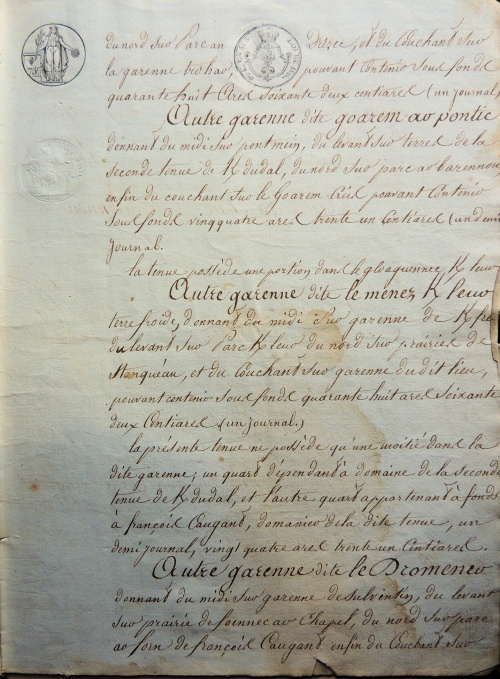 du nord sur Parc an Drezec, et du Couchant sur
la garenne trohao, pouvant Contenir Sous fonds
quarante huit Ares Soixante deux centiares (un journal)
Autre garenne dite goarem ar pontic
donnant du midi sur pontmein, du levant sur terres de la
Seconde tenue de K dudal, du nord sur parc ar barennou
enfin du couchant sur le Goarem Creis pouvant Contenir
Sous fonds vingquatre ares trente un Centiares (un demi
journal.
la tenue possède une portion dans le gloaguennec K leuo
Autre garenne dite le menez K leuo
terre froide, donnant du midi sur garenne de
du levant sur Parc K leuo du nord sur prairies de
Stanquéau, et du Couchant sur garenne dudit lieu,
pouvant contenir sous fonds quarante huit ares soixante
deux Centiares (un journal.)
la présente tenue ne possède qu'une moitié dans la
dite garenne; un quart dépendant à domaine de la Seconde
tenue de K dudal, et l'autre quart appartenant à fonds
à françois Caugant, domanier de la dite tenue, un
demi journal, vingt quatre ares trente un Centiares.
Autre garenne dite le Dromenec
donnant du midi sur garenne de sulvintin, du levant
sur prairie de foennec ar Chapel, du nord sur parc
ar forn de françois Caugant enfin du Couchant sur